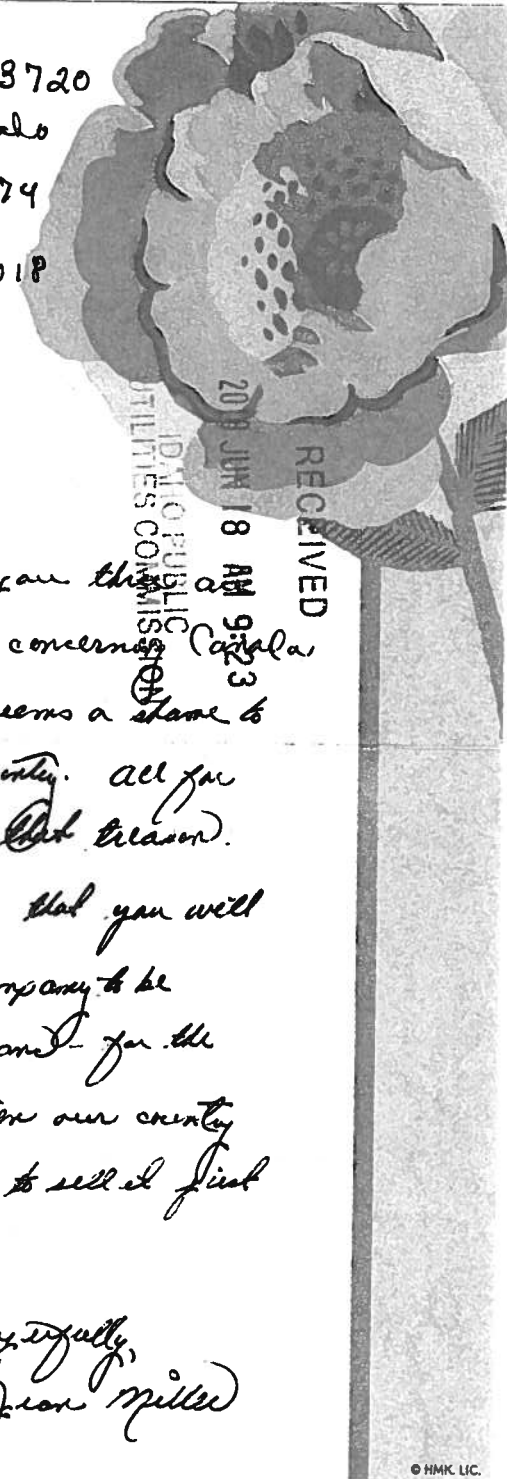 3720
aho
74
018
RECEIVED
2018 JUN 18 AM 9:23
IDAHO PUBLIC
UTILITIES COMMISSION
you this as
concerning Canada,
eems a shame to
ntry. all for
that treason.
that you will
mpany to be
and - for the
our country
to sell it first
fully,
Jean Miller
© HMK. LIC.